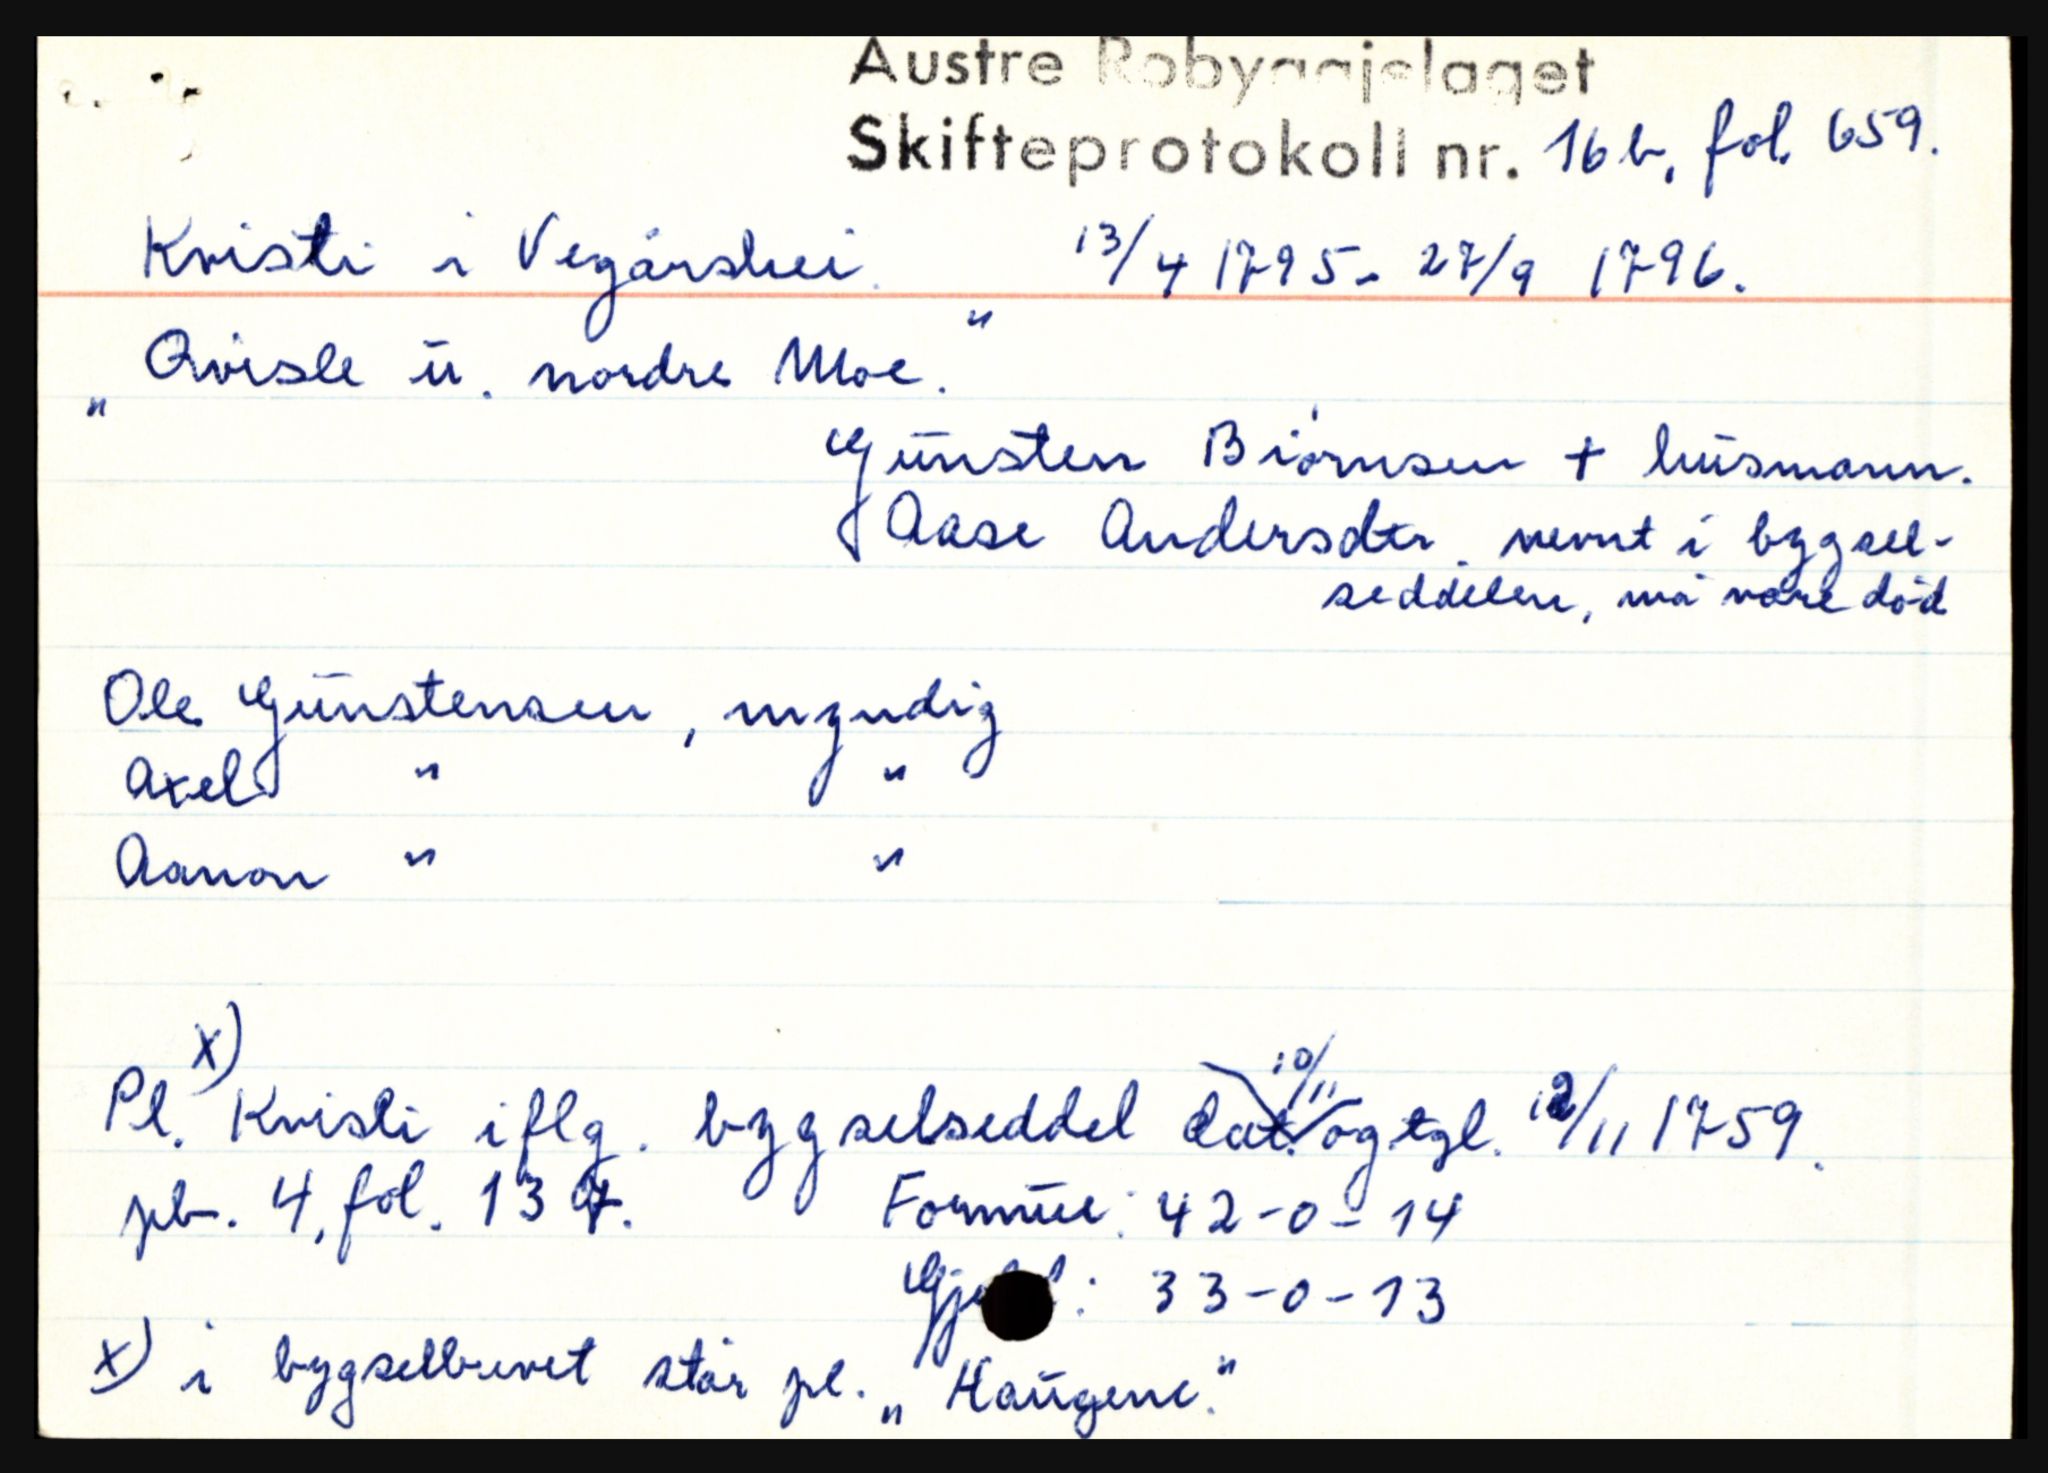 Austre Robyggjelaget
Skifteprotokoll nr. 16b, fol. 659.
Kvisli i Vegårshei. 13/4 1795 - 27/9 1796.
„Qvisle u. nordre Moe."
Gunsten Biørnsen + husmann.
Aase Andersdtr. nevnt i bygsel-
seddelen, må være död
Ole Gunstensen, myndig
Axel " "
Aanon " "
x)
Pl. Kvisli iflg. bygselseddel dat. 10/11 og tgl. 12/11 1759.
pb. 4, fol. 137. Formue: 42-0-14
Gjeld: 33-0-13
x) i bygselbrevet står pl. „Haugene."